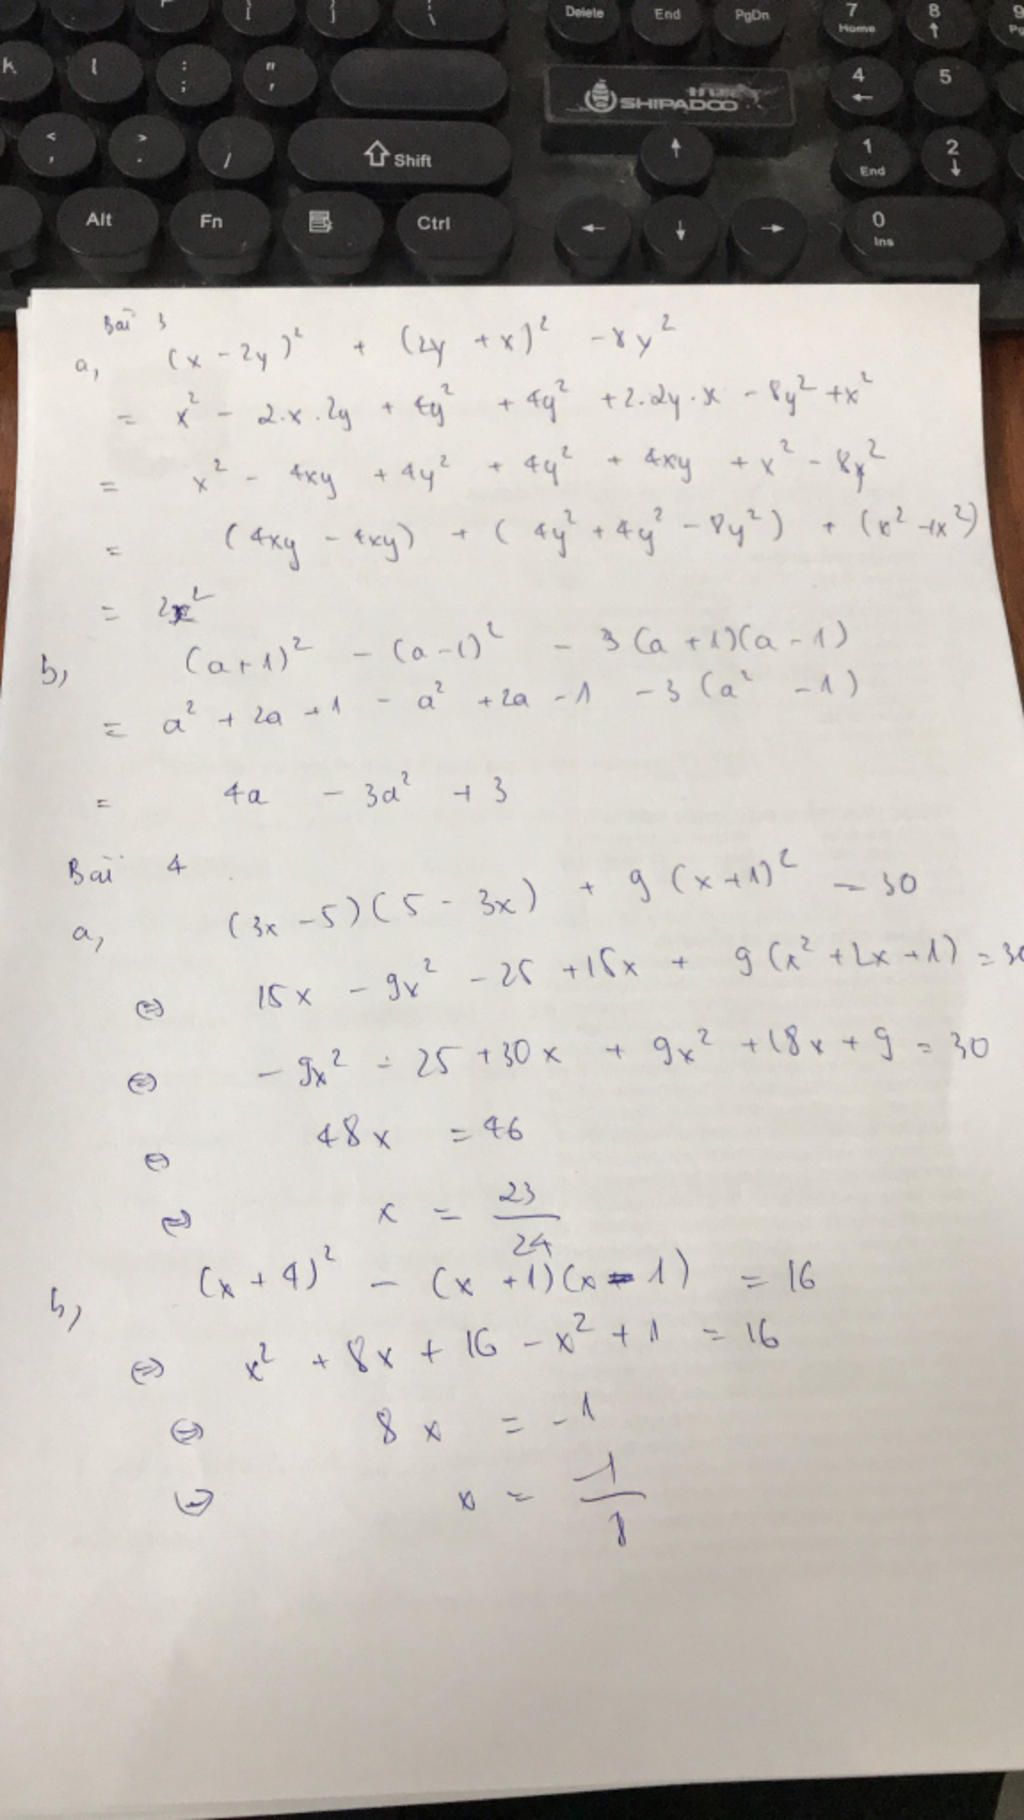 Delete End PgDn 7 Home 8 ↑ 9
K l : ; " ' 4 ← 5
SHIPADOO
< , > . / ⇧ Shift ↑ 1 End 2 ↓
Alt Fn Ctrl ← ↓ → 0 Ins
Bài 3
a, (x - 2y)² + (2y + x)² - 8y²
= x² - 2.x.2y + 4y² + 4y² + 2.2y.x - 8y² + x²
= x² - 4xy + 4y² + 4y² + 4xy + x² - 8y²
= (4xy - 4xy) + (4y² + 4y² - 8y²) + (x² + x²)
= 2x²
b, (a+1)² - (a-1)² - 3(a+1)(a-1)
= a² + 2a + 1 - a² + 2a - 1 - 3(a² - 1)
= 4a - 3a² + 3
Bài 4
a, (3x - 5)(5 - 3x) + 9(x+1)² = 30
⇔ 15x - 9x² - 25 + 15x + 9(x² + 2x + 1) = 30
⇔ - 9x² - 25 + 30x + 9x² + 18x + 9 = 30
⇔ 48x = 46
⇔ x = 23/24
b, (x + 4)² - (x + 1)(x - 1) = 16
⇔ x² + 8x + 16 - x² + 1 = 16
⇔ 8x = -1
⇔ x = -1/8